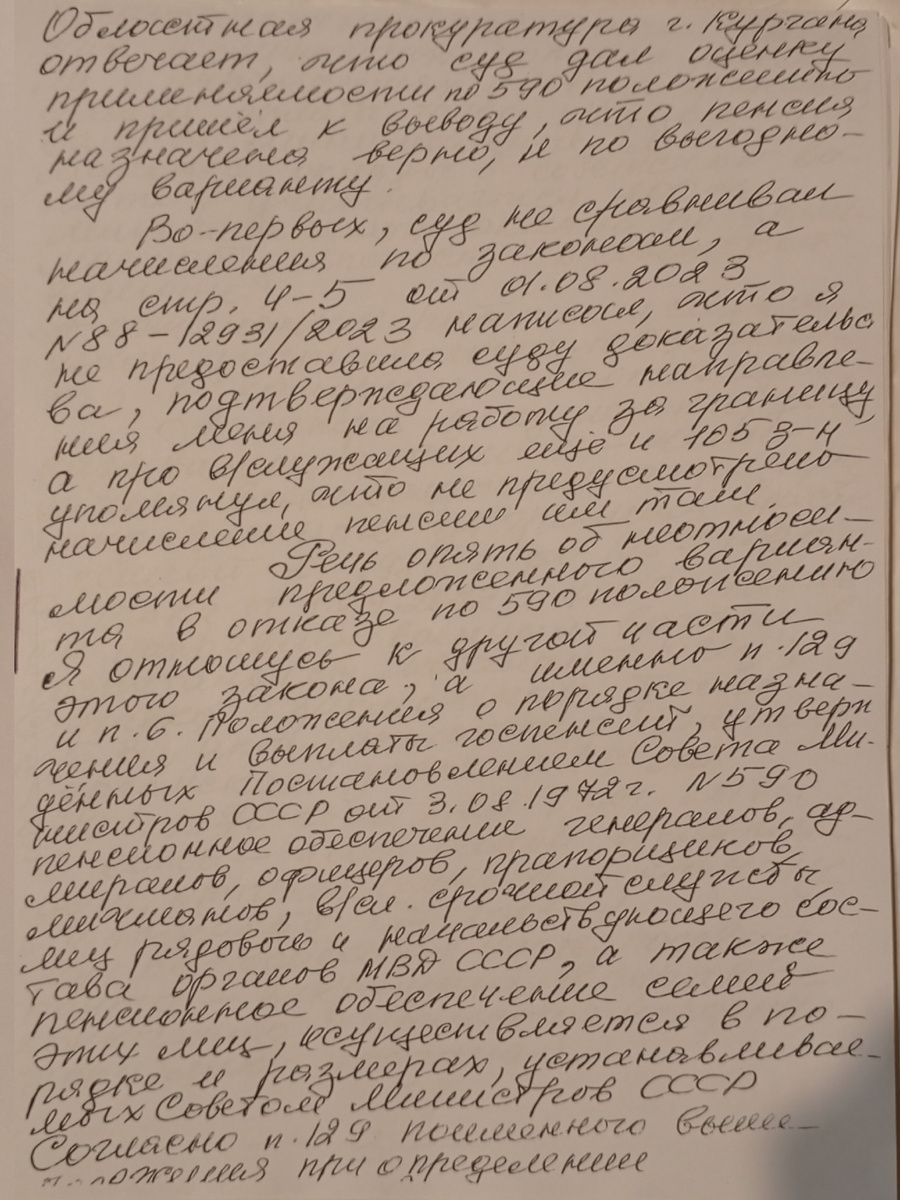 Областная прокуратура г. Кургана
отвечает, что суд дал оценку
применяемости по 590 положению
и пришёл к выводу, что пенсия
назначена верно, и по выгодно-
му варианту.
Во-первых, суд не сравнивал
начисления по законам, а
на стр. 4-5 от 01.08.2023
N88-12931/2023 написал, что я
не предоставила суду доказательс
ва, подтверждающие направле-
ния меня на работу за границу,
а про в/служащих ещё и 1053-н
упомянул, что не предусмотрено
начисление пенсии им там.
Речь опять об неотноси-
мости предложенного вариан-
та в отказе по 590 положению
Я отношусь к другой части
этого закона, а именно п.129
и п.6. Положения о порядке назна-
чения и выплаты госпенсий, утверж
дённых Постановлением Совета Ми-
нистров СССР от 3.08.1972г. N590
пенсионное обеспечение генералов, ад-
миралов, офицеров, прапорщиков,
мичманов, в/сл. срочной службы,
лиц рядового и начальствующего сос-
тава органов МВД СССР, а также
пенсионное обеспечение семей
этих лиц, осуществляется в по-
рядке и размерах, устанавливае-
мых Советом Министров СССР
Согласно п.129 поименного выше-
положения при определении